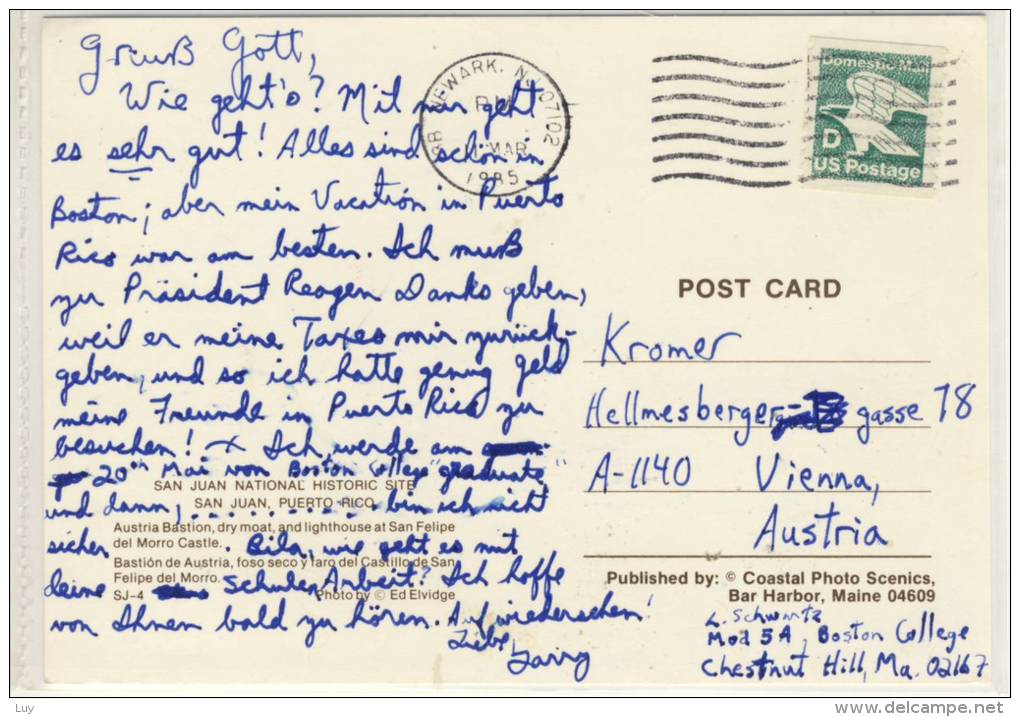 Gruß Gott,
Wie geht's? Mit mir geht
es sehr gut! Alles sind schön in
Boston; aber mein Vacation in Puerto
Rico war am besten. Ich muß
zu Präsident Reagen Danks geben,
weil er meine Taxes mir zurück-
geben, und so ich hatte genug Geld
meine Freunde in Puerto Rico zu
besuchen! Ich werde am
20th Mai von Boston College "graduate"
und dann, . . . . . . . . . bin ich nicht
sicher. Bila, wie geht es mit
deine Schulen Arbeit? Ich hoffe
von Ihnen bald zu hören. Auf wiedersehen!
Liebe,
Larry
SAN JUAN NATIONAL HISTORIC SITE
SAN JUAN, PUERTO RICO
Austria Bastion, dry moat, and lighthouse at San Felipe
del Morro Castle.
Bastión de Austria, foso seco y faro del Castillo de San
Felipe del Morro.
SJ-4 Photo by © Ed Elvidge
NEWARK, NJ 07102
PM
MAR
1985
Domestic Mail
D
US Postage
POST CARD
Kromer
Hellmesberger- gasse 78
A-1140 Vienna,
Austria
Published by: © Coastal Photo Scenics,
Bar Harbor, Maine 04609
L. Schwartz
Mod 5A, Boston College
Chestnut Hill, Ma. 02167
Luy
www.delcampe.net